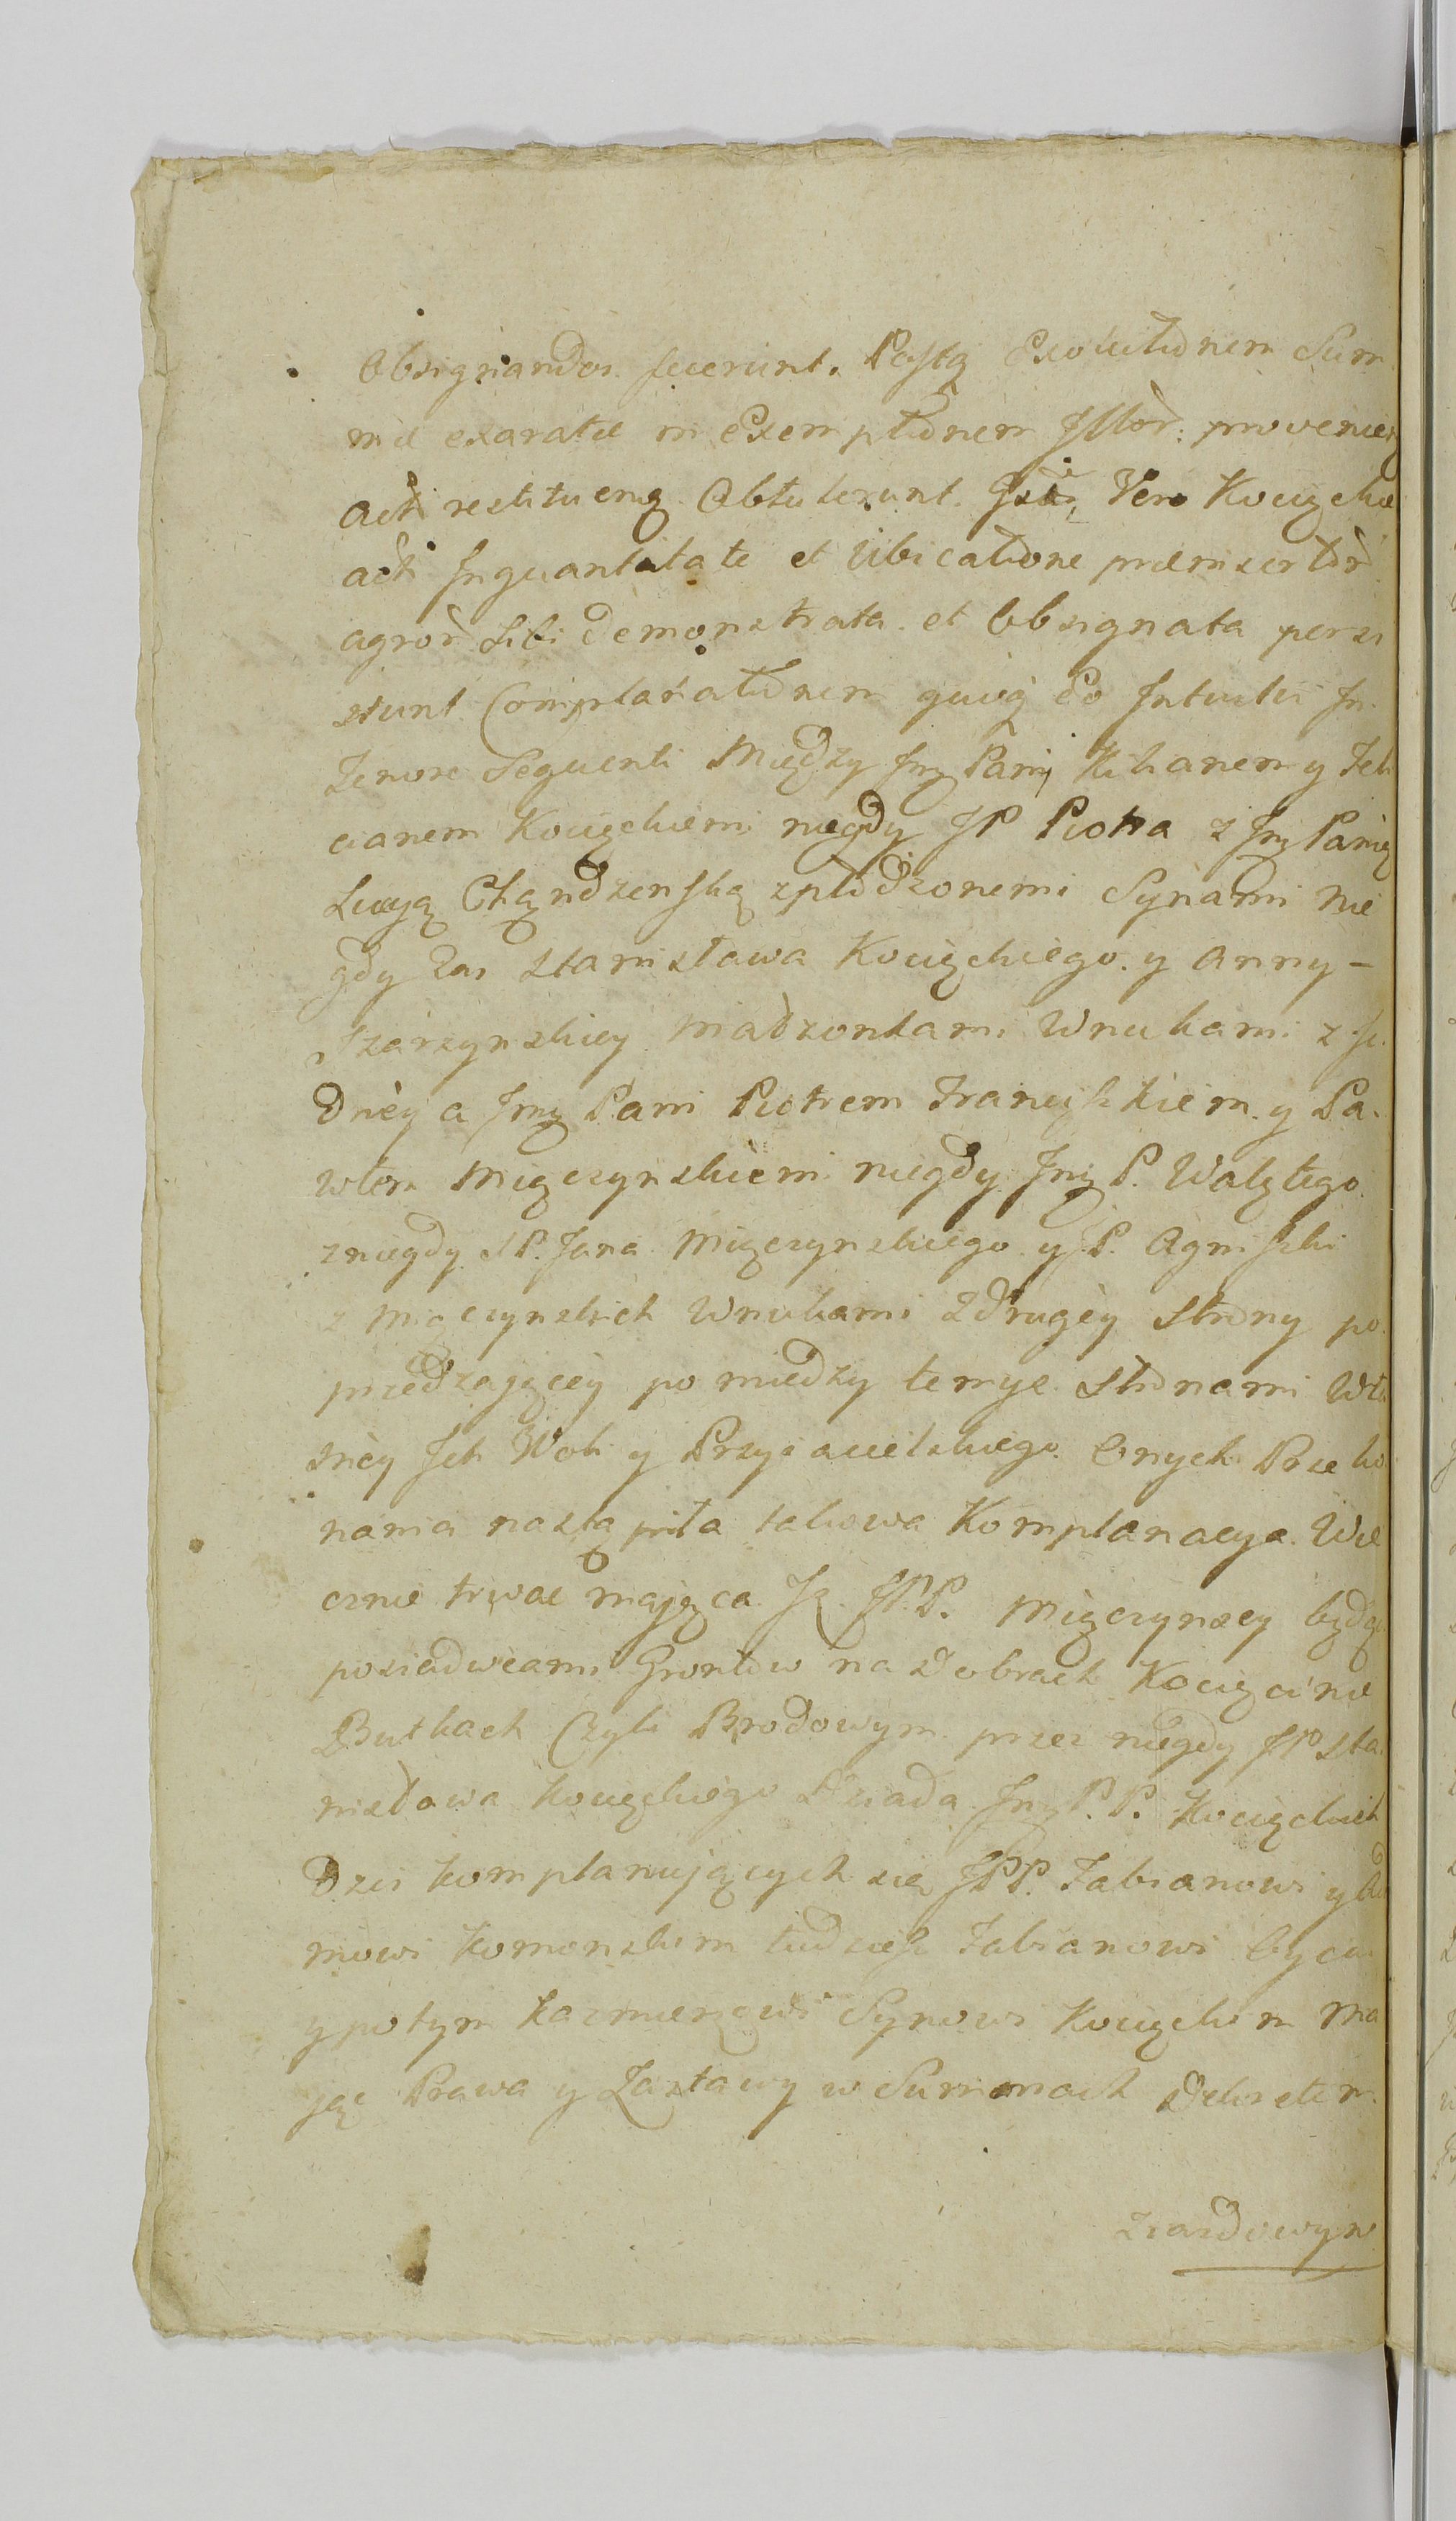 Obsignandos fecerunt. Postq̃ Exolutiõnem Sum
mæ exaratæ in Exemptiõnem Illor̃: provenien
acti restituenq̃ Obtulerunt. Vero Kocięckie
acti In quantitate et Ubicatiõne præmissor
agror̃ sibi demonstrata et Obsignata persi
stunt Complanatiõnem quoq̃ Eo Intuitu In
Tenore Sequenti Między Jmę Pami Kilianem y Feli
cianem Kocięckiemi niegdy JP Piotra z Jmę Panią
Lucyą Chądzenską zpłodzonemi Synami nie
gdy Zas Stanisława Kocięckiego y Anny –
Szarzynskiey Małzonkami Wnukami z Je
dnéy a Jmę Pami Piotrem Franciszkiem y Pa
włem Mięczynskiemi niegdy Jmę P. Walętego
zniegdy JP. Jana Mięczynskiego y JP. Agniszki
z Mięczynskich Wnukami Zdrugéy Strony po
przedzającéy pomiedzy temyz Stronami Wła
snéy Jch Woli y Przyiacielskiego Onych Przeko
nania nastąpiła takowa Komplanacya Wie
cznie trwac mająca Jż JPP. Mięczynscy będąc
posiadwcami Grontów na Dobrach Kocięcinie
Butkach Czyli Brodowym przez niegdy JP Sta
nisława Kocięckiego Dziada Jmę P.P. Kocięckich
Dzis komplanujących się JPP. Fabianowi y Ada
mowi Komonskim tudziesz Fabianowi Oycu
y potym Kazmierzowi Synowi Kocięckim Ma
jąc Prawa y Zastawy w Summach Dekretem
ziazdowym